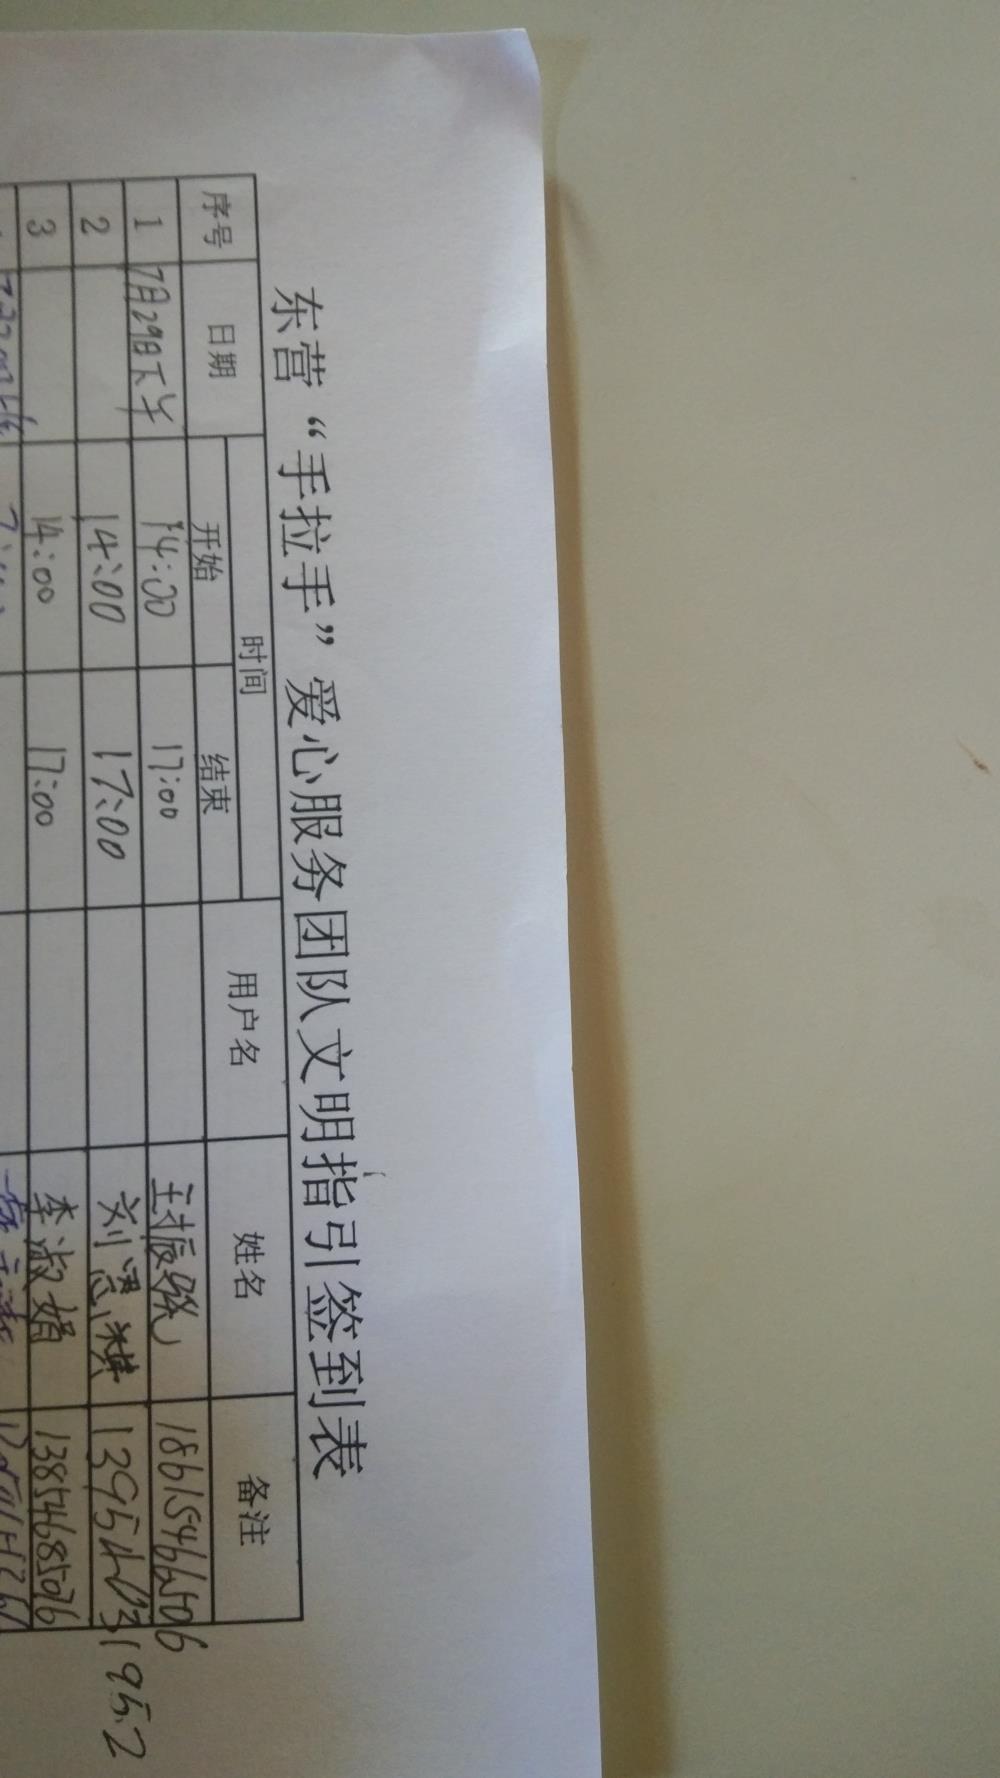 东营“手拉手”爱心服务团队文明指引签到表
序号 日期 时间 用户名 姓名 备注
开始 结束
1 7月29日下午 14:00 17:00 18615466506
2 14:00 17:00 刘
3 14:00 17:00 李淑娟 13854685076